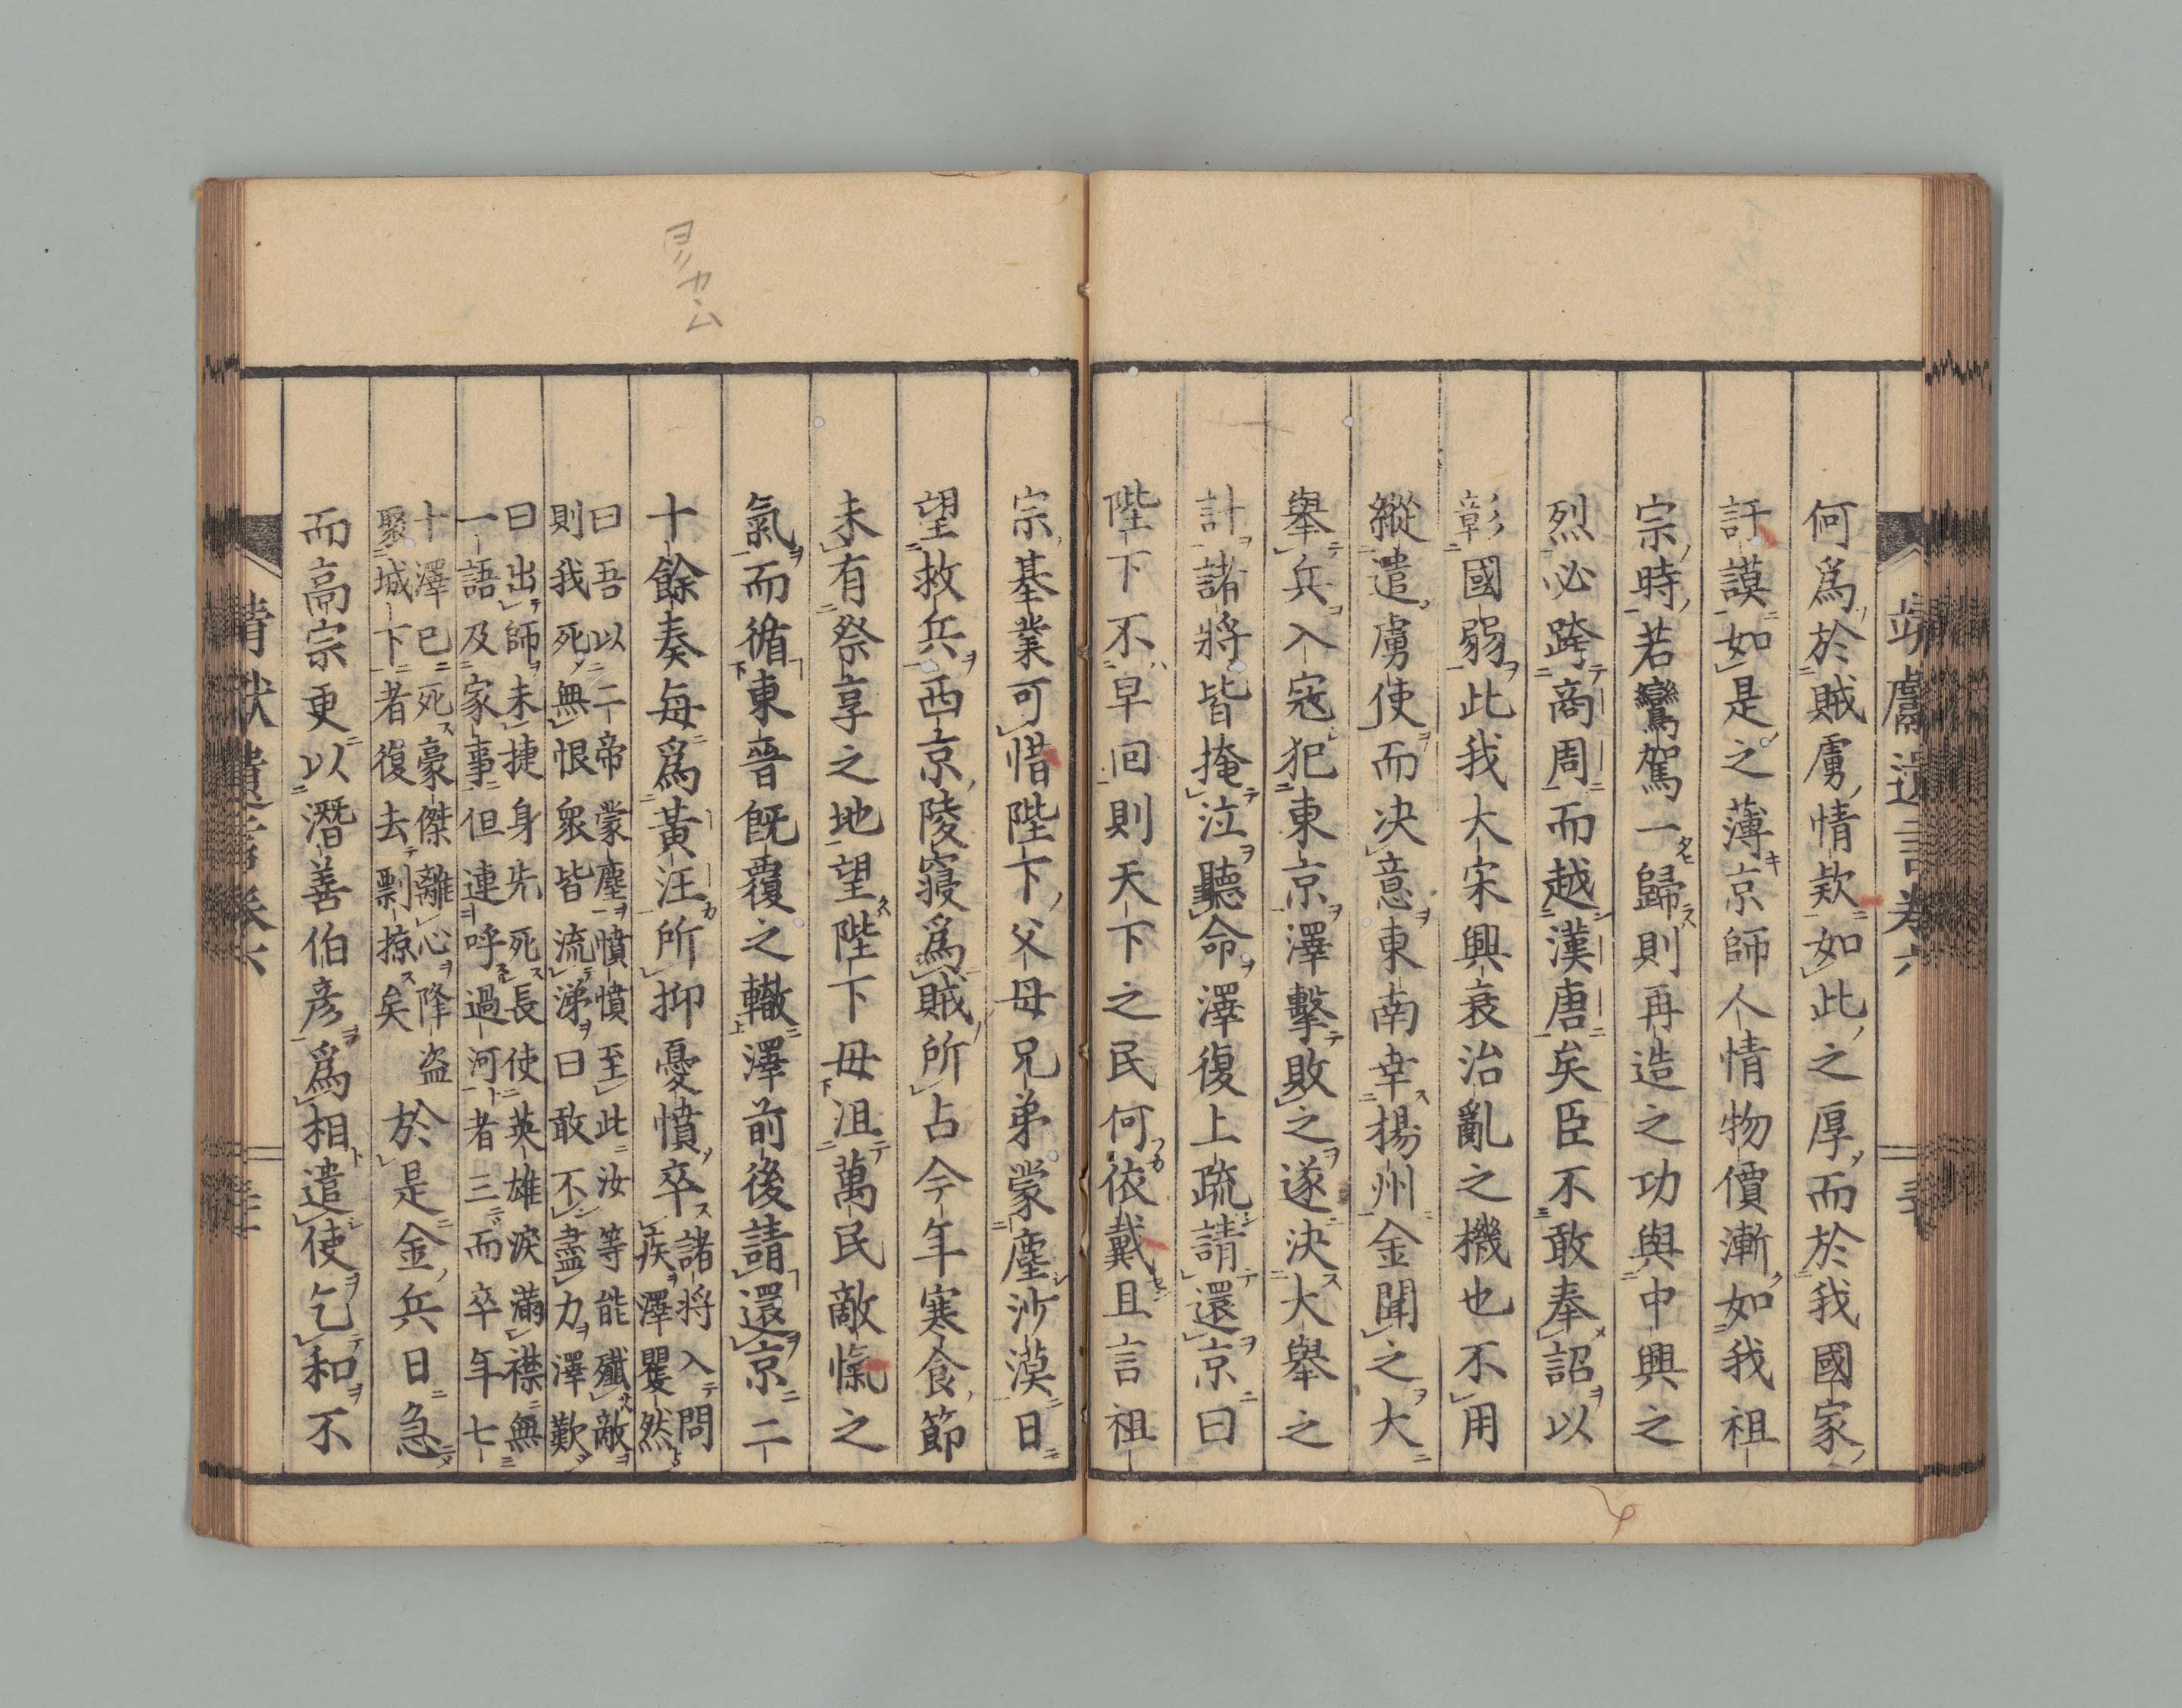 何爲於賊虜情款如此之厚而於我國家
訏謨如是之薄京師人情物價漸如我祖
宗時若鸞駕一歸則再造之功與中興之
烈必跨商周而越漢唐矣臣不敢奉詔以
彰國弱此我大宋興衰治亂之機也不用
縱遣虜使而決意東南幸揚州金聞之大
舉兵入寇犯東京澤擊敗之遂決大舉之
計諸將皆掩泣聽命澤復上疏請還京曰
陛下不早回則天下之民何依戴且言祖
宗基業可惜陛下父母兄弟蒙塵沙漠日
望救兵西京陵寢爲賊所占今年寒食節
未有祭享之地望陛下毋沮萬民敵愾之
氣而循東晉既覆之轍澤前後請還京二
十餘奏每爲黃汪所抑憂憤卒
諸將入問
疾澤矍然
曰吾以二帝蒙塵憤憤至此汝等能殲敵
則我死無恨衆皆流涕曰敢不盡力澤歎
曰出師未捷身先死長使英雄淚滿襟無
一語及家事但連呼過河者三而卒年七
十澤已死豪傑離心降盗
聚城下者復去剽掠矣
於是金兵日急
而高宗更以潛善伯彥爲相遣使乞和不